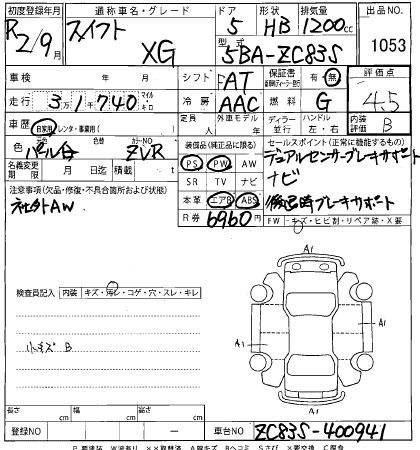 初度登録年月 通称車名・グレード ドア 形状 排気量 出品NO.
R2/9月 スイフト XG 5 HB 1200cc 1053
型式 5BA-ZC83S
車検 年 月 シフト FAT 保証書 有・無 評価点
走行 3万1千740 マイル キロ 冷房 AAC 燃料 G 4.5
車歴 自家用・レンタ・事業用( ) 定員 人 外車モデル 年 ディーラー 並行 ハンドル 左・右 内装評価 B
色 パール白 色替 カラーNO ZVR 装備品(純正品に限る) セールスポイント(正常に機能するもの)
名義変更期限 月 日迄 積載 t PS PW AW デュアルセンサーブレーキサポート
注意事項(欠品・修復・不具合箇所および状態) SR TV ナビ ナビ
社外AW 本革 エアB ABS 後退時ブレーキサポート
R券 6960円 FW キズ・ヒビ割・リペア跡・X要
検査員記入 内装 キズ・汚レ・コゲ・穴・スレ・キレ
A1
小キズB
A1
A1
A1
長さ cm 幅 cm 高さ cm
登録NO ー 車台NO ZC83S-400941